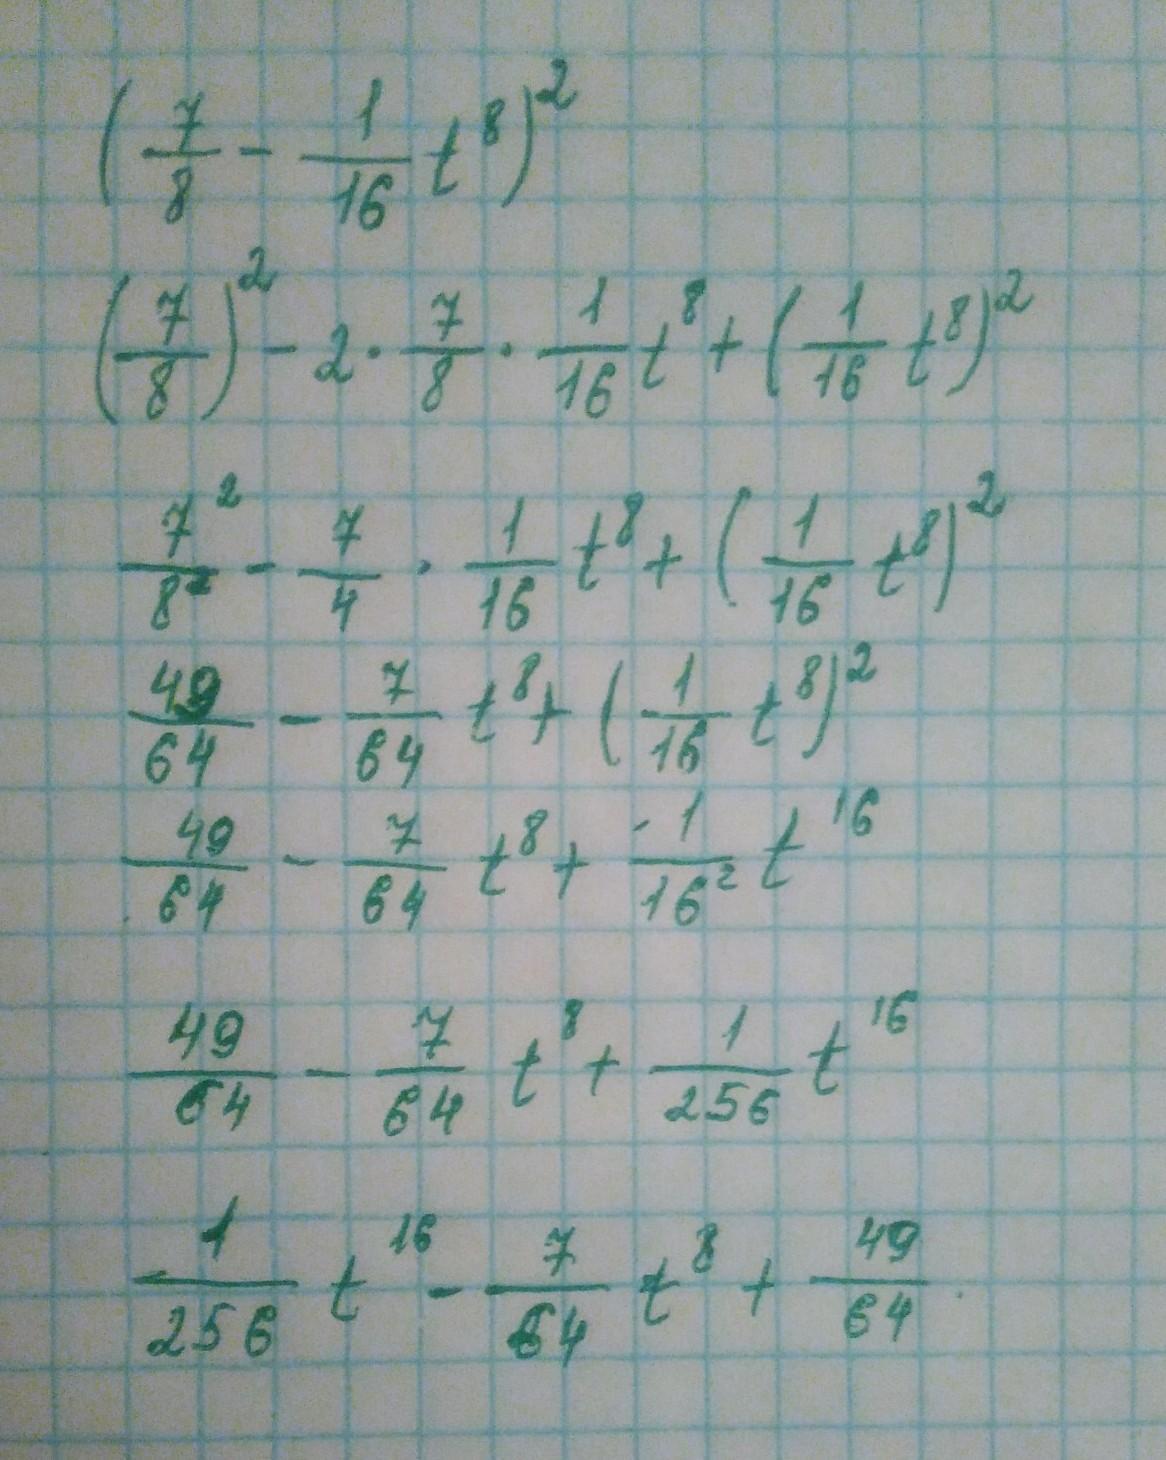 (7/8 - 1/16 t^8)^2
(7/8)^2 - 2 · 7/8 · 1/16 t^8 + (1/16 t^8)^2
7^2/8^2 - 7/4 · 1/16 t^8 + (1/16 t^8)^2
49/64 - 7/64 t^8 + (1/16 t^8)^2
49/64 - 7/64 t^8 + 1/16^2 t^16
49/64 - 7/64 t^8 + 1/256 t^16
1/256 t^16 - 7/64 t^8 + 49/64